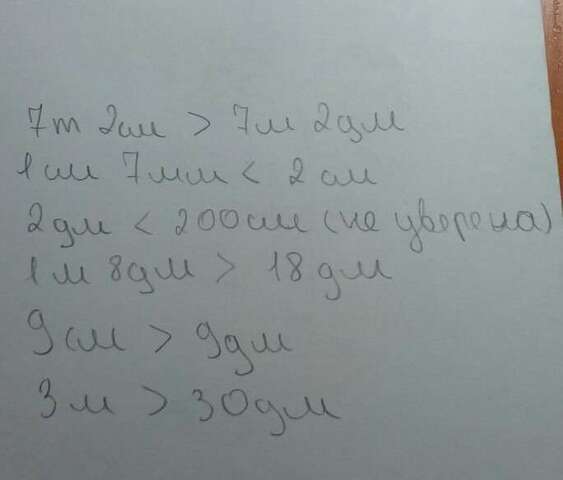 7m 2см > 7м 2дм
1см 7мм < 2 см
2дм < 200см (не уверена)
1м 8дм > 18 дм
9см > 9дм
3м > 30дм